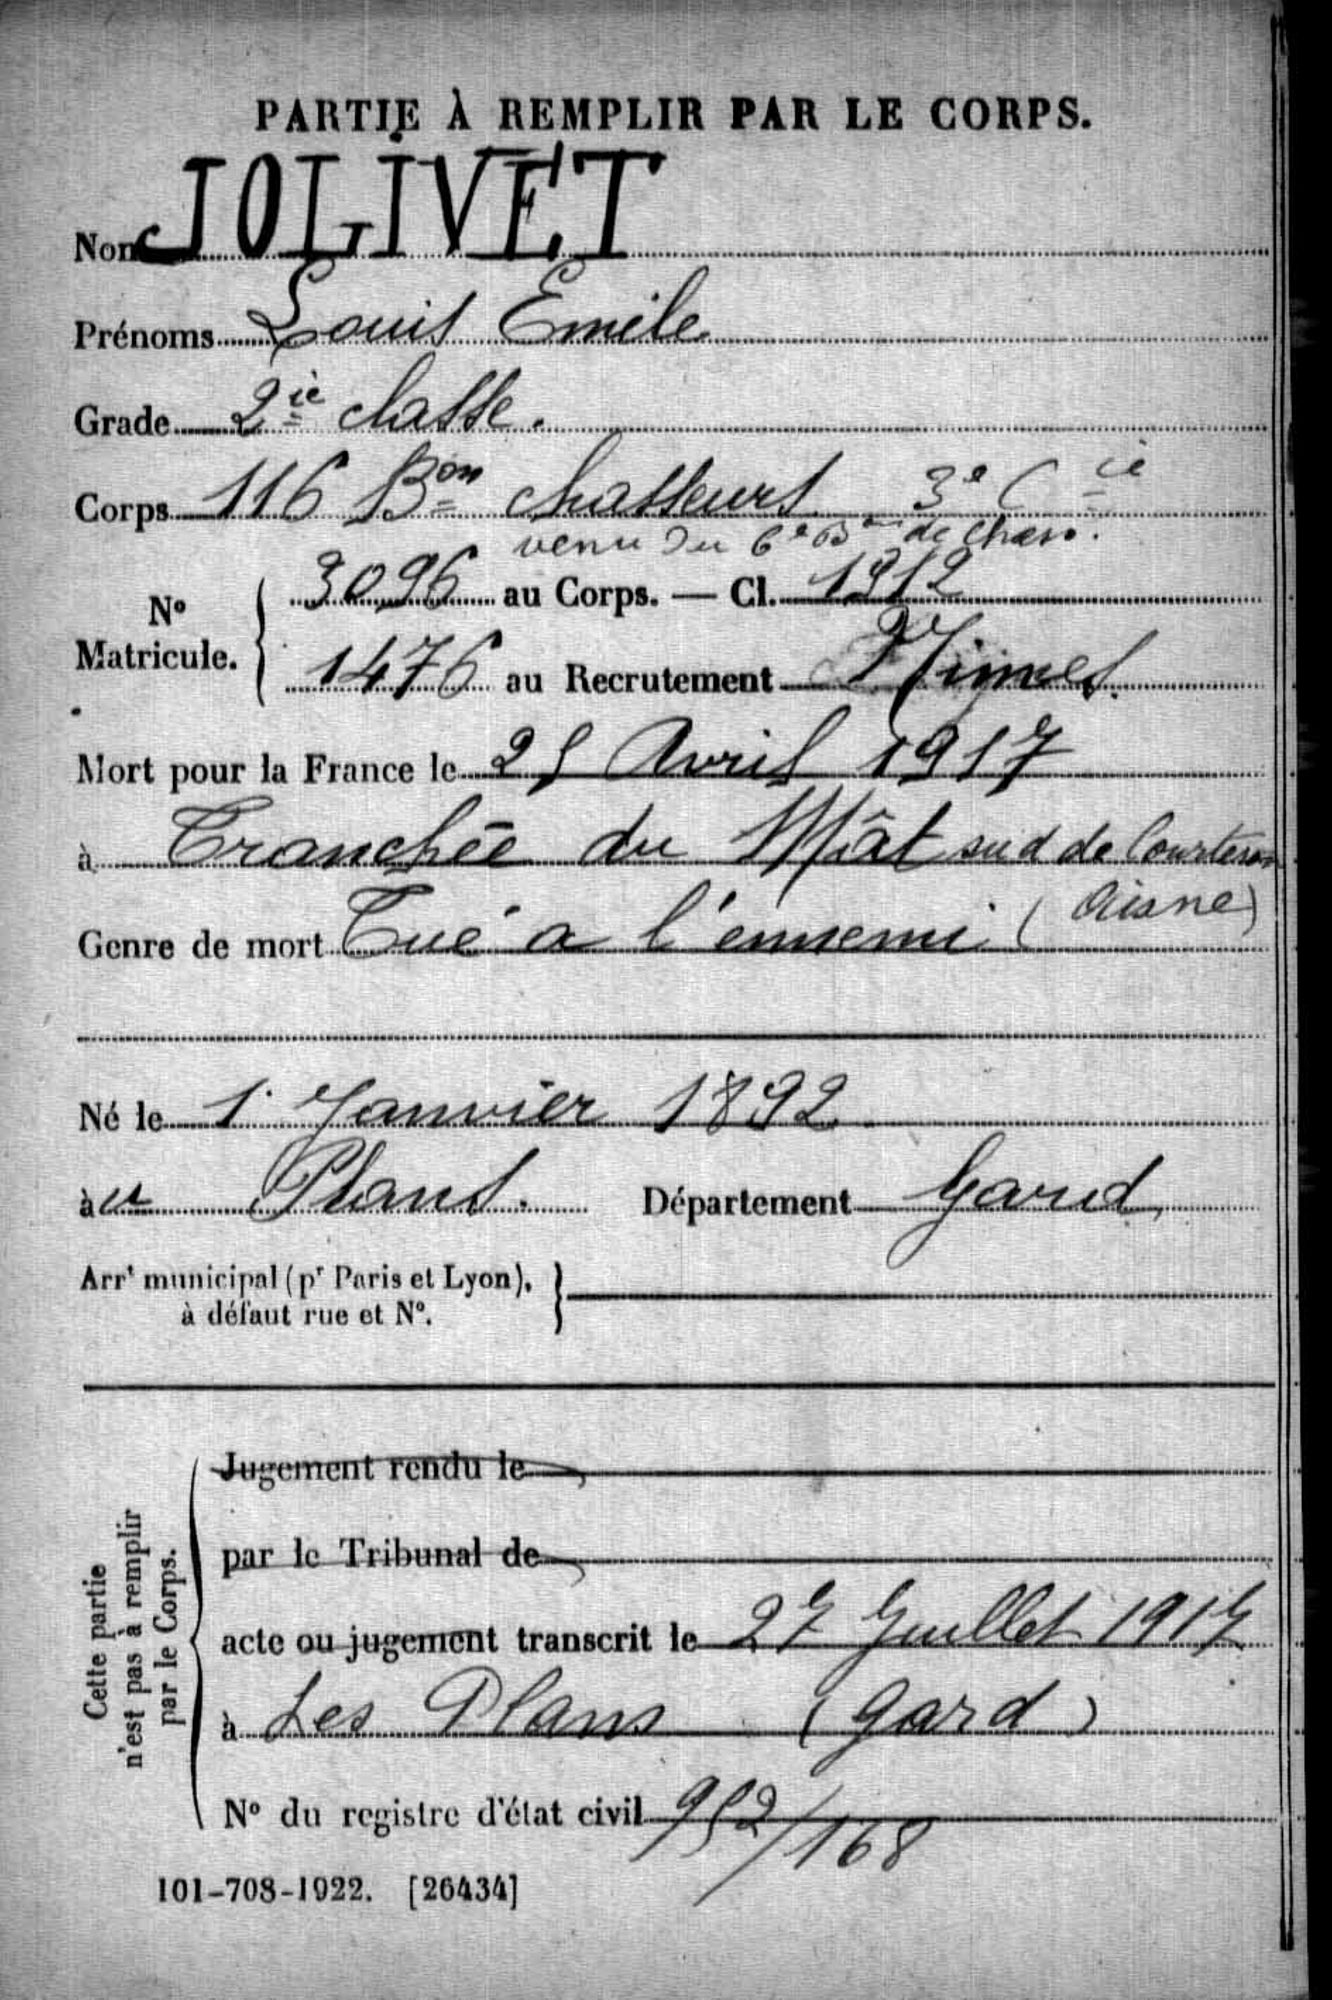 PARTIE À REMPLIR PAR LE CORPS.
Nom JOLIVET
Prénoms Louis Emile
Grade 2ie classe.
Corps 116 Bon chasseurs 3e Cie
venu du 6e Bon de Chass.
No Matricule. { 3096 au Corps. — Cl. 1912
1476 au Recrutement Nimes
Mort pour la France le 25 Avril 1917
à Tranchée du Mât sud de
(Aisne)
Genre de mort Tué a l'ennemi
Né le 1 Janvier 1892
àu Plans. Département Gard
Arrt municipal (pr Paris et Lyon), }
à défaut rue et No.
Cette partie
n'est pas à remplir
par le Corps.
Jugement rendu le
par le Tribunal de
acte ou jugement transcrit le 27 Juillet 1917
à Les Plans (Gard)
No du registre d'état civil 952/168
101-708-1922. [26434]